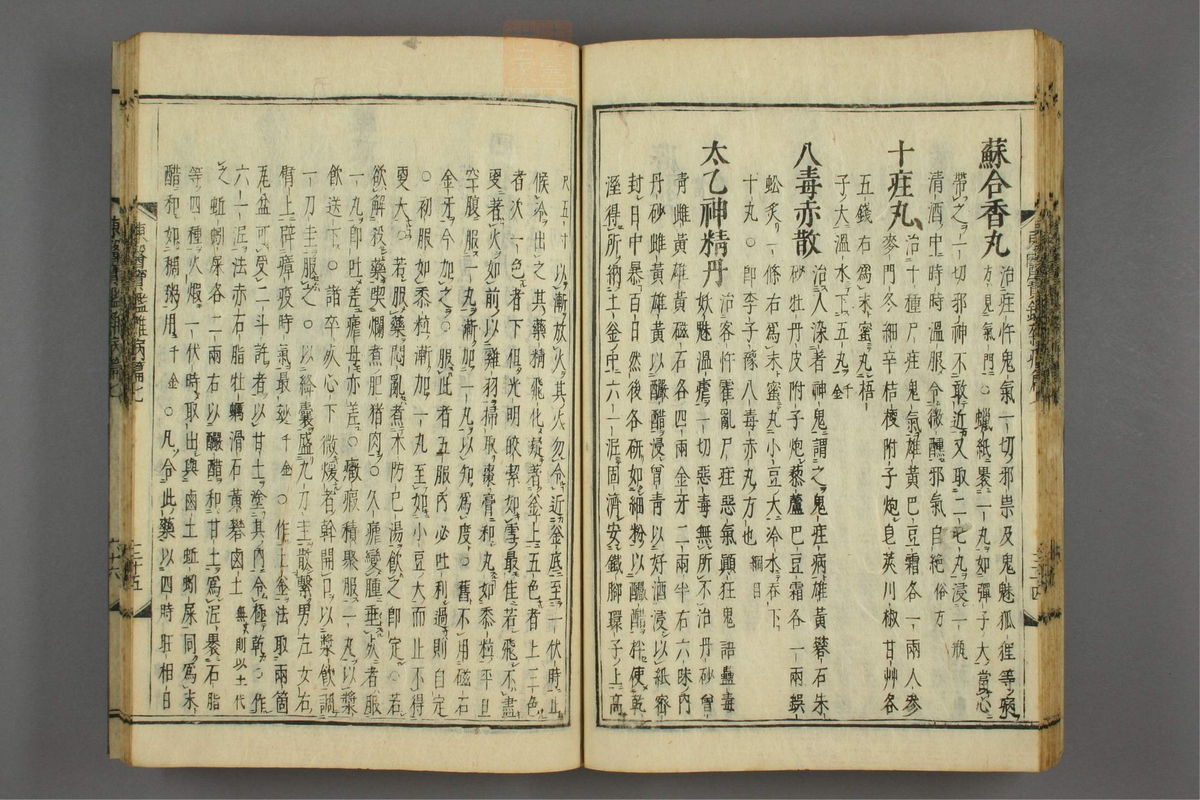 蘇合香丸 治疰忤鬼氣一切邪祟及鬼魅狐狸等疾
方見氣門○蠟紙裹一丸如彈子大當心
帶之一切邪神不敢近又取二七丸浸一瓶
清酒中時時溫服令微醺邪氣自絶俗方
十疰丸 治十種尸疰鬼氣雄黃巴豆霜各一兩人參
麥門冬細辛桔梗附子炮皂莢川椒甘艸各
五錢右爲末蜜丸梧
子大溫水下五丸千金
八毒赤散 治人染著神鬼謂之鬼疰病雄黃礬石朱
砂牡丹皮附子炮藜蘆巴豆霜各一兩蜈
蚣炙一條右爲末蜜丸小豆大冷水吞下
十丸○卽李子豫八毒赤丸方也綱目
太乙神精丹 治客忤霍亂尸疰惡氣顚狂鬼語蠱毒
妖魅溫瘧一切惡毒無所不治丹砂曾
靑雌黃雄黃磁石各四兩金牙二兩半右六味內
丹砂雌黃雄黃以釅醋浸曾靑以好酒浸以紙密
封日中暴百日然後各硏如細粉以釅醋拌使乾
溼得所納土釜中六一泥固濟安鐵脚環子上高
尺五寸 以漸放火其火勿令近釜底至一伏時止
候冷出之其藥精飛化凝著釜上五色者上三色
者次一色者下但光明皎潔如雪最佳若飛不盡
更著火如前以雞羽掃取棗膏和丸如黍粒平旦
空腹服一丸漸加一丸以知爲度○舊不用磁石
金牙今加之○服此者五服內必吐利過則自定
○初服如黍粒漸加一丸至如小豆大而止不得
更大○若服藥悶亂煮木防已湯飮之卽定○若
欲解殺藥喫爛煮肥猪肉○久瘧變腫垂死者服
一丸卽吐差瘧母亦差○癥瘕積聚服一丸以漿
飮送下○諸卒死心下微煖者幹開口以漿飮調
一刀圭服之○以絳囊盛九刀圭散繫男左女右
臂上辟瘴疫時氣最玅千金○作土釜法取兩箇
瓦盆可受二斗許者以甘土塗其內令極乾○作
六一泥法赤石脂牡蠣滑石黃礬鹵土無則以土代
之蚯蚓屎各二兩右以釅醋和甘土爲泥裹石脂
等四種火煆一伏時取出與鹵土蚯蚓屎同爲末
醋和如稠粥用千金○凡合此藥以四時旺相日